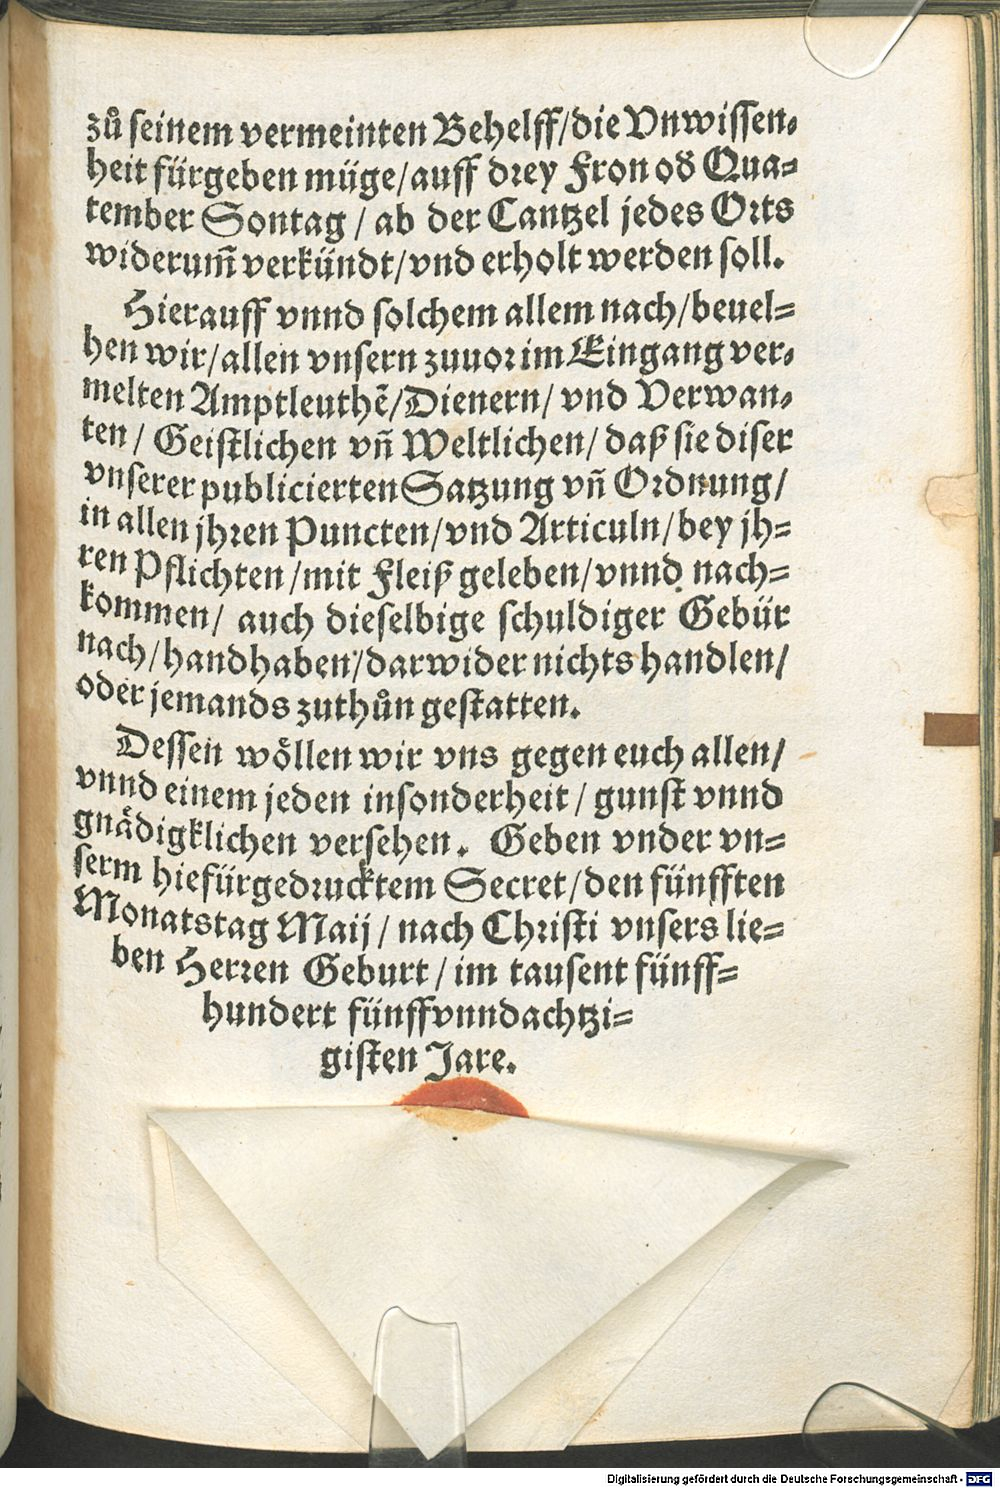 zů seinem vermeinten Behelff/die Vnwissen-
heit fürgeben müge/auff drey Fron od̃ Qua-
tember Sontag / ab der Cantzel jedes Orts
widerum̃ verkündt/vnd erholt werden soll.
Hierauff vnnd solchem allem nach/beuel-
hen wir/allen vnsern zuuor im Eingang ver-
melten Amptleuthẽ/Dienern/ vnd Verwan-
ten / Geistlichen vñ Weltlichen/ daß sie diser
vnserer publicierten Satzung vñ Ordnung/
in allen jhren Puncten/vnd Articuln/bey jh-
ren Pflichten /mit Fleiß geleben/vnnd nach-
kommen/ auch dieselbige schuldiger Gebür
nach/handhaben/darwider nichts handlen/
oder jemands zuthůn gestatten.
Dessen wöllen wir vns gegen euch allen/
vnnd einem jeden insonderheit / gunst vnnd
gnädigklichen versehen. Geben vnder vn-
serm hiefürgedrucktem Secret/den fünfften
Monatstag Maij / nach Christi vnsers lie-
ben Herren Geburt / im tausent fünff-
hundert fünffvnndachtzi-
gisten Jare.
Digitalisierung gefördert durch die Deutsche Forschungsgemeinschaft - DFG